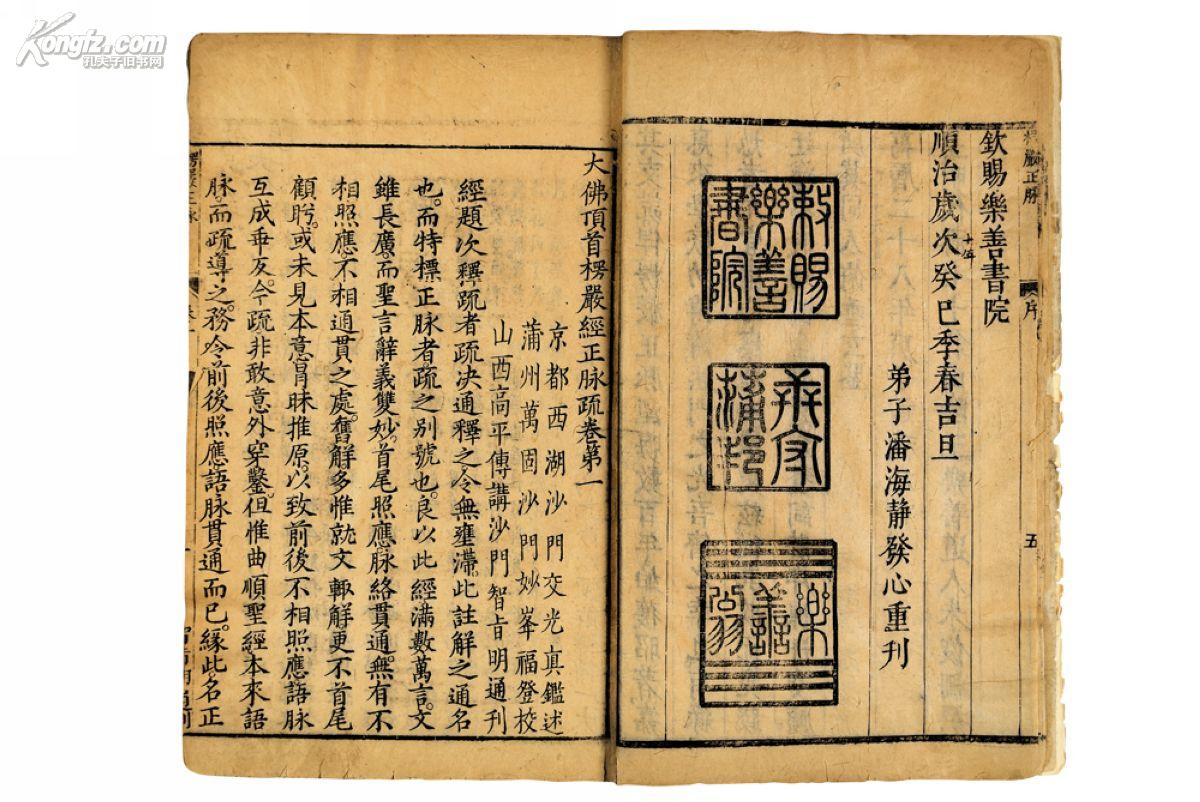 Kongfz.com
孔夫子旧书网
楞嚴正脉
序
五
欽賜樂善書院
順治十年歲次癸巳季春吉旦
弟子潘海靜發心重刊
敕賜樂善書院
樂善
大佛頂首楞嚴經正脉疏卷第一
京都西湖沙門交光真鑑述
蒲州萬固沙門妙峯福登校
山西高平傳講沙門智旨明通刊
經題次釋疏者疏決通釋之令無壅滯此註解之通名
也。而特標正脉者疏之別號也。良以此經滿數萬言。文
雖長廣。而聖言辭義雙妙。首尾照應脉絡貫通。無有不
相照應。不相通貫之處。舊解多惟就文輙解。更不首尾
顧眄。或未見本意。冐昧推原。以致前後不相照應。語脉
互成乖反。今疏非敢意外穿鑿。但惟曲順聖經本來語
脉。而疏導之。務令前後照應語脉貫通而已。緣此名正